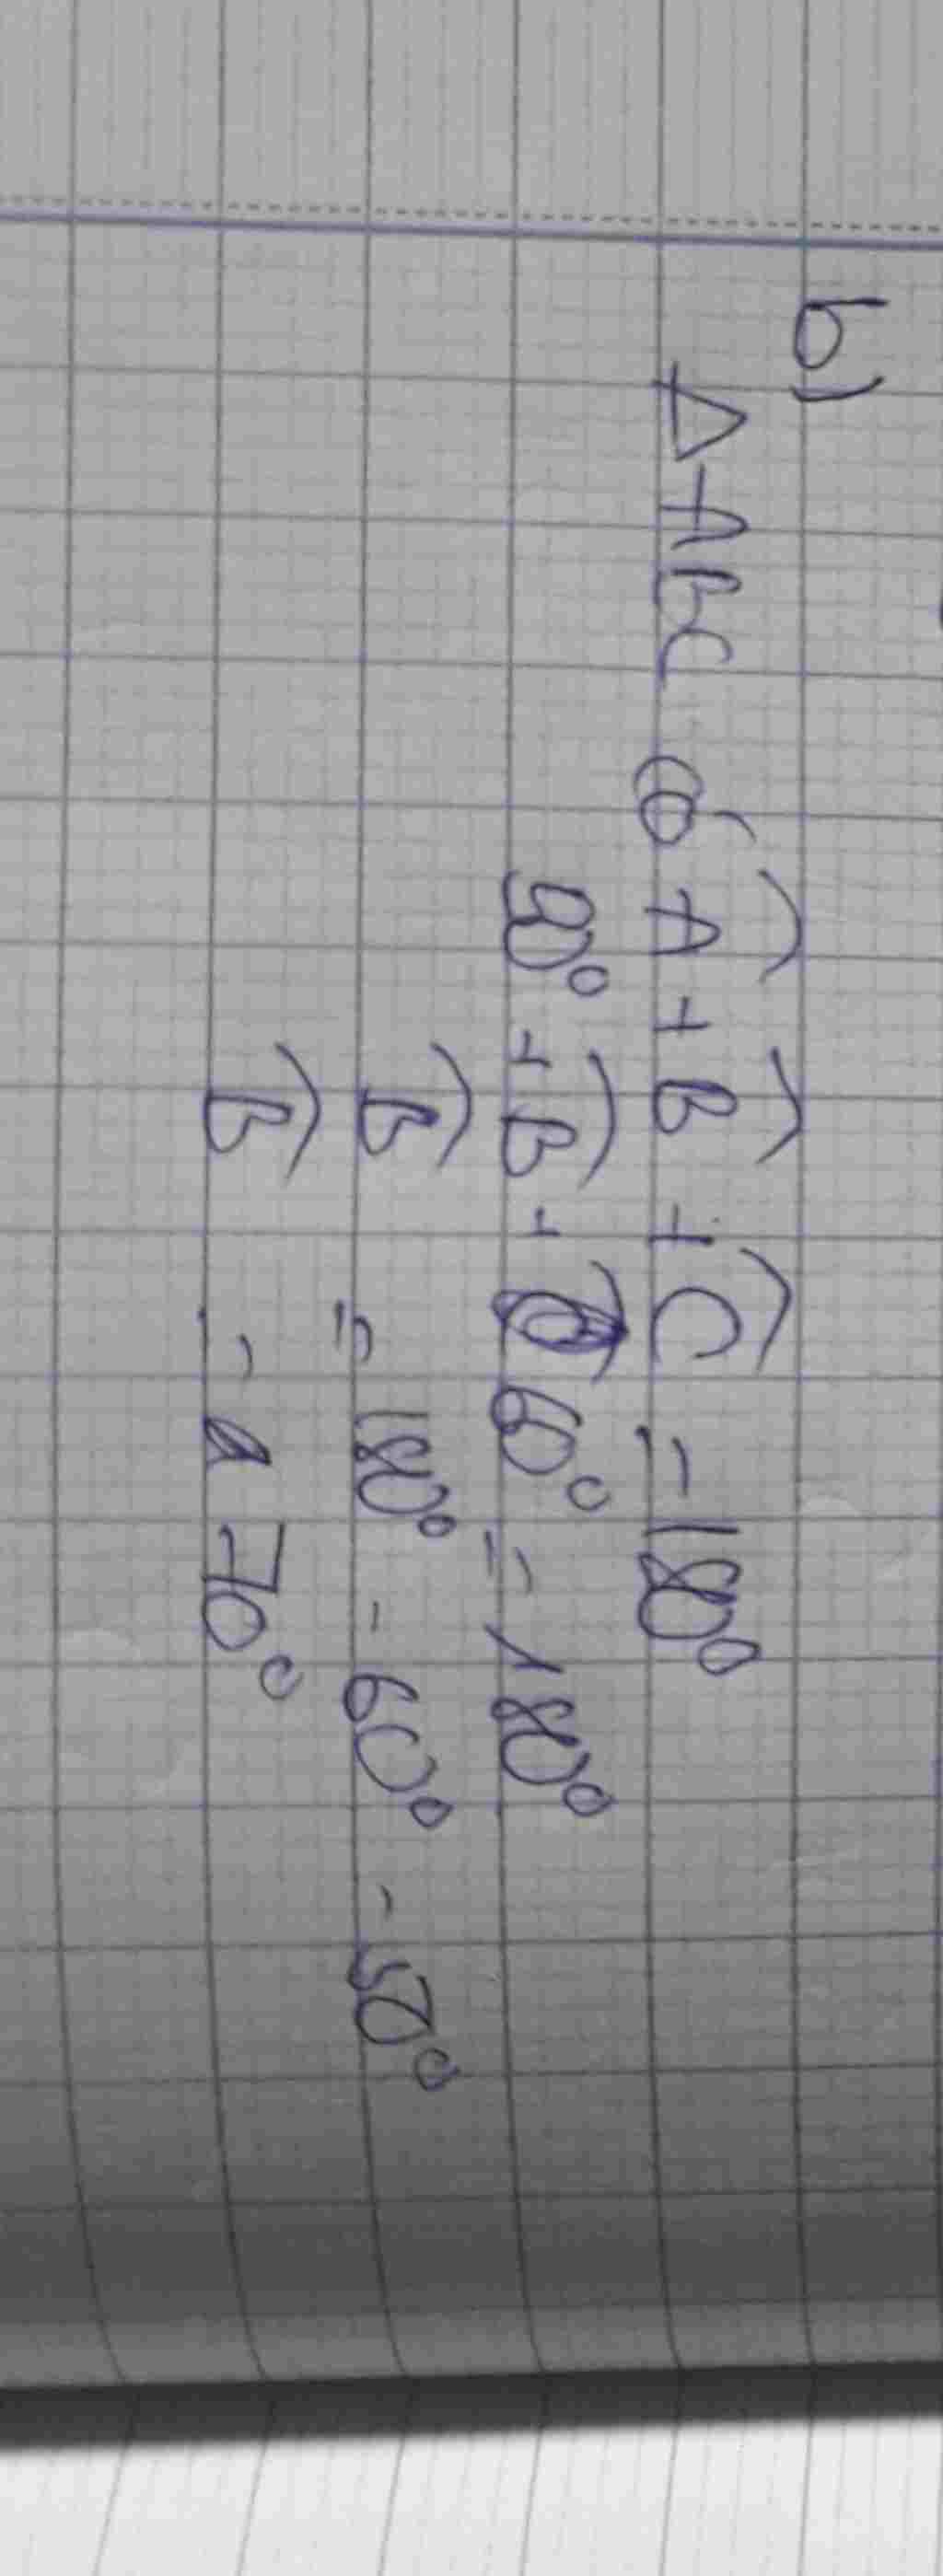 b)
Δ ABC có Â + B̂ + Ĉ = 180°
50° + B̂ + 60° = 180°
B̂ = 180° - 60° - 50°
B̂ = 70°